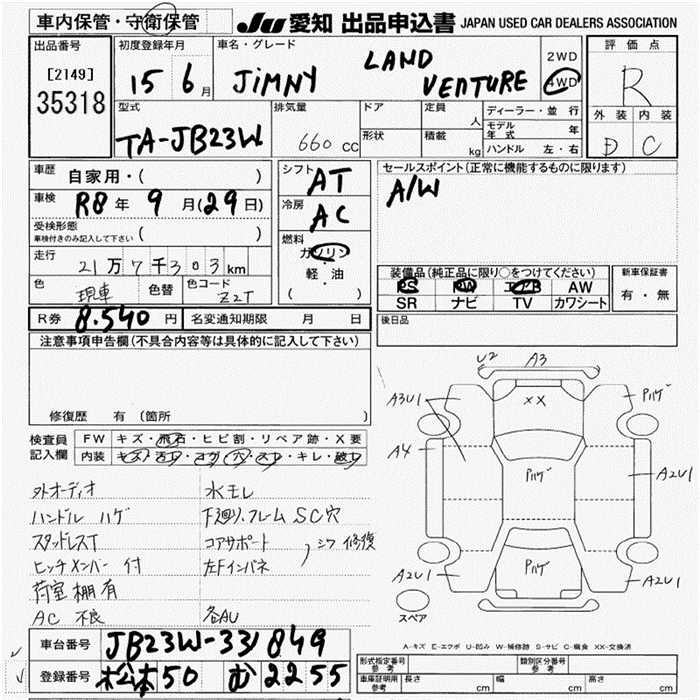 車内保管・守衛保管 JU 愛知 出品申込書 JAPAN USED CAR DEALERS ASSOCIATION
出品番号
[2149]
35318
初度登録年月
15 6月
車名・グレード
JIMNY LAND VENTURE
2WD
4WD
評価点
R
外装 内装
D C
型式
TA-JB23W
排気量
660 cc
ドア
形状
定員 人
積載 kg
ディーラー・並行
モデル年式 年
ハンドル 左・右
車歴
自家用・( )
車検
R8年 9月(29日)
受検形態
車検付きのみ記入して下さい ( )
走行
21万7千303km
色 現車 色替 色コード Z2T
R券 8.540円 名変通知期限 月 日
シフト AT
冷房 AC
燃料
ガソリン
軽・油
( )
セールスポイント(正常に機能するものに限ります)
A/W
装備品(純正品に限り○をつけてください)
PS PW エアB AW
SR ナビ TV カワシート
新車保証書
有・無
後日品
注意事項申告欄(不具合内容等は具体的に記入して下さい)
修復歴 有(箇所
検査員記入欄
FW キズ・飛石・ヒビ割・リペア跡・X要
内装 キズ・汚れ・コゲ・穴・スレ・キレ・破れ
外オーディオ 水モレ
ハンドル ハゲ 下廻り.フレーム SC穴
スタッドレスT コアサポート
ヒッチメンバー付 左Fインパネ
シワ 修復
荷室棚有
AC 不良 各AU
車台番号 JB23W-331849
登録番号 松本50 む 2255
U2 A3
A3U1 XX Pハゲ
A4 Pハゲ A2U1
A2U1 Pハゲ A2U1
スペア
A-キズ E-エクボ U-凹み W-補修跡 S-サビ C-腐食 XX-交換済
形式指定番号 参考
類別区分番号 参考
車庫証明用 参考 長さ cm 幅 cm 高さ cm